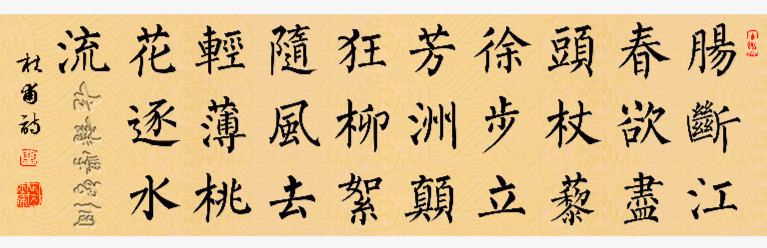 腸斷江
春欲盡
頭杖藜
徐步立
芳洲顛
狂柳絮
隨風去
輕薄桃
花逐水
流
杜甫詩